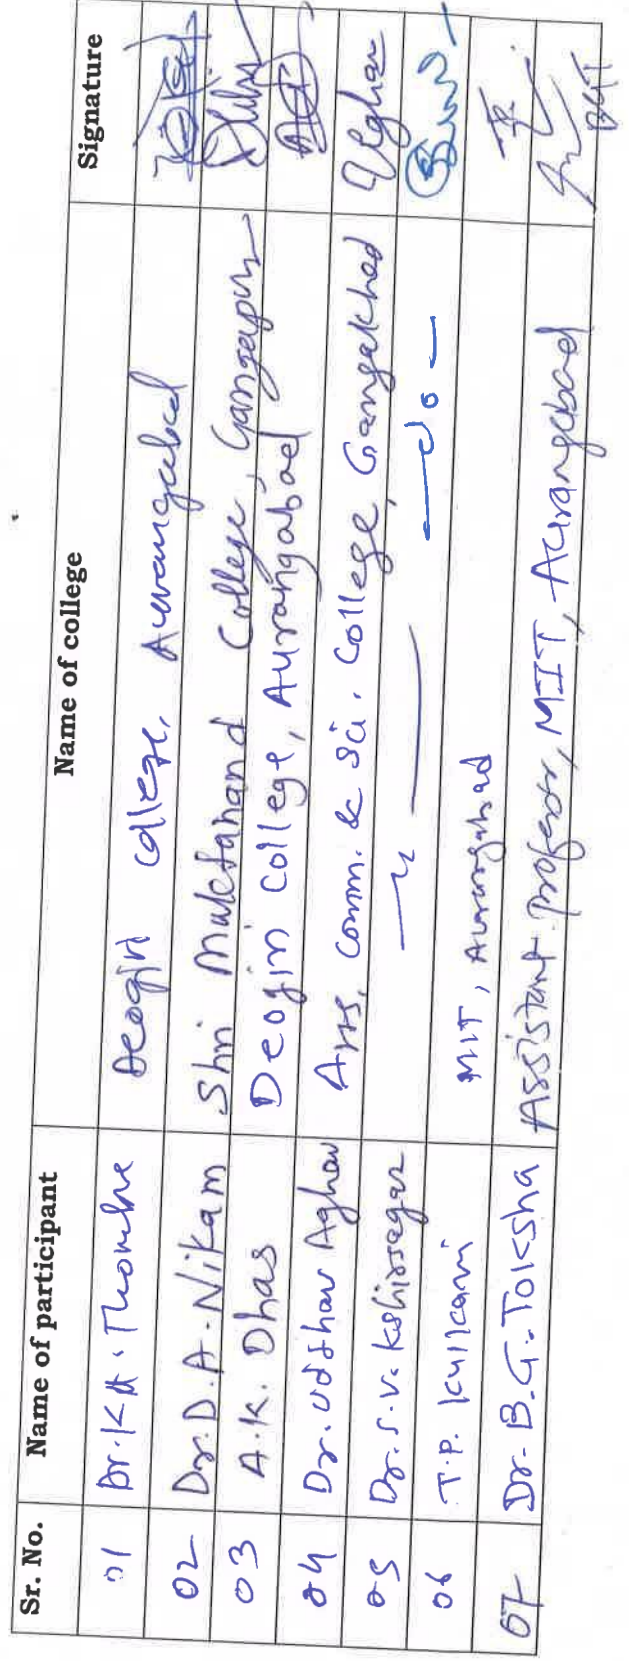 Sr. No. Name of participant Name of college Signature
01 Dr. K.A. Thombre Deogiri College, Aurangabad
02 Dr. D.A. Nikam Shri Muktanand College, Gangapur
03 A.K. Dhas Deogiri College, Aurangabad
04 Dr. Uddhav Aghav Arts, Comm. & Sci. College, Gangakhed
05 Dr. S.V. Kshirsagar — 〃 — — do —
06 T.P. Kulkarni MIT, Aurangabad
07 Dr. B.G. Toksha Assistant Professor, MIT, Aurangabad